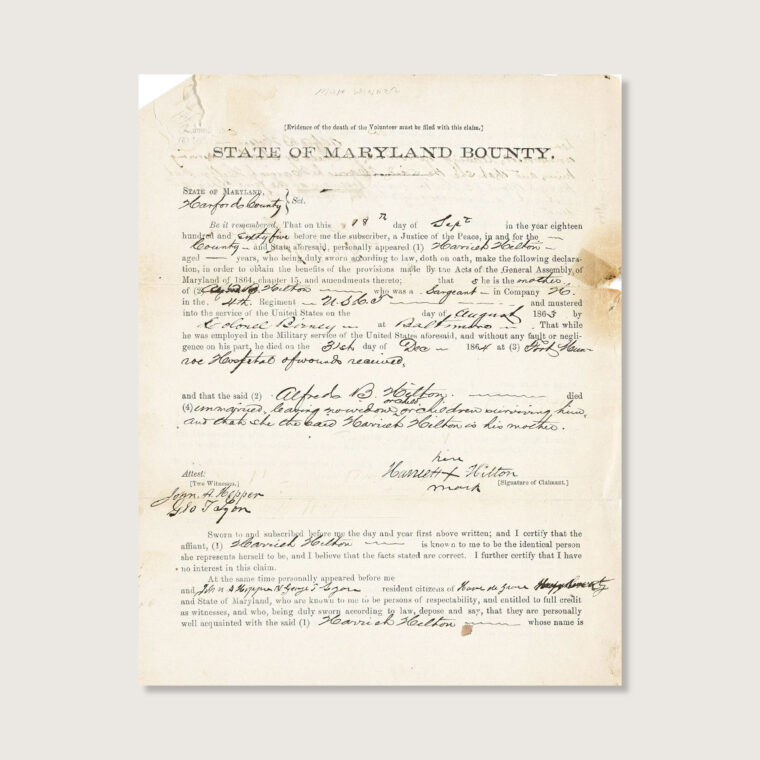 [Evidence of the death of the Volunteer must be filed with this claim.]
STATE OF MARYLAND BOUNTY.
STATE OF MARYLAND,
Harford County } Sct.
Be it remembered, That on this 18th day of Sept in the year eighteen
hundred and sixty five before me the subscriber, a Justice of the Peace, in and for the
County and State aforesaid, personally appeared (1) Harriet Hilton
aged years, who being duly sworn according to law, doth on oath, make the following declara-
tion, in order to obtain the benefits of the provisions made by the Acts of the General Assembly of
Maryland of 1864, chapter 15, and amendments thereto; that she is the mother
of (2) Alfred B. Hilton who was a Sergeant in Company H.
in the 4th Regiment U.S.C.T and mustered
into the service of the United States on the day of August 1863 by
Colonel Birney at Baltimore. That while
he was employed in the Military service of the United States aforesaid, and without any fault or negli-
gence on his part, he died on the 31st day of Dec 1864 at (3) Fort Mun-
roe Hospital of wounds received,
and that the said (2) Alfred B. Hilton died
(4) unmarried, leaving no widow or child or children surviving him,
and that she the said Harriet Hilton is his mother.
her
Harriett X Hilton
mark
Attest:
[Two Witnesses.]
[Signature of Claimant.]
John A. Hopper
Geo T Lyon
Sworn to and subscribed before me the day and year first above written; and I certify that the
affiant, (1) Harriet Hilton is known to me to be the identical person
she represents herself to be, and I believe that the facts stated are correct. I further certify that I have
no interest in this claim.
At the same time personally appeared before me
and John A Hopper & George T Lyon resident citizens of Havre de Grace
and State of Maryland, who are known to me to be persons of respectability, and entitled to full credit
as witnesses, and who, being duly sworn according to law, depose and say, that they are personally
well acquainted with the said (1) Harriet Hilton whose name is